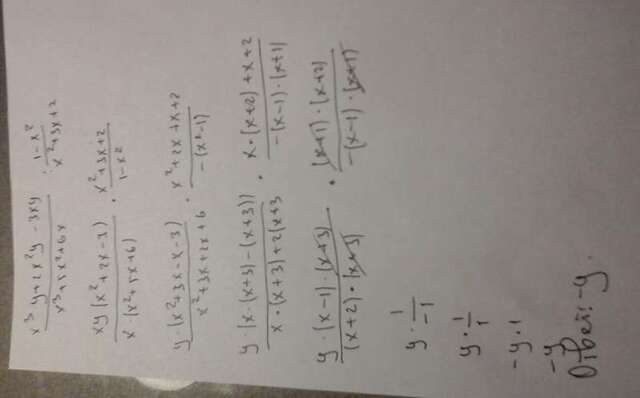 (x³y+2x²y-3xy)/(x³+5x²+6x) : (1-x²)/(x²+3x+2)
xy(x²+2x-3)/x(x²+5x+6) · (x²+3x+2)/(1-x²)
y·(x²+3x-x-3)/(x²+3x+2x+6) · (x²+2x+x+2)/(-(x²-1))
y(x·(x+3)-(x+3))/(x·(x+3)+2(x+3 · (x·(x+2)+x+2)/(-(x-1)·(x+1))
y·(x-1)·(x+3)/(x+2)·(x+3) · (x+1)·(x+2)/(-(x-1)·(x+1))
y·1/(-1)
y·1/1
-y·1
-y
Ответ: -y.